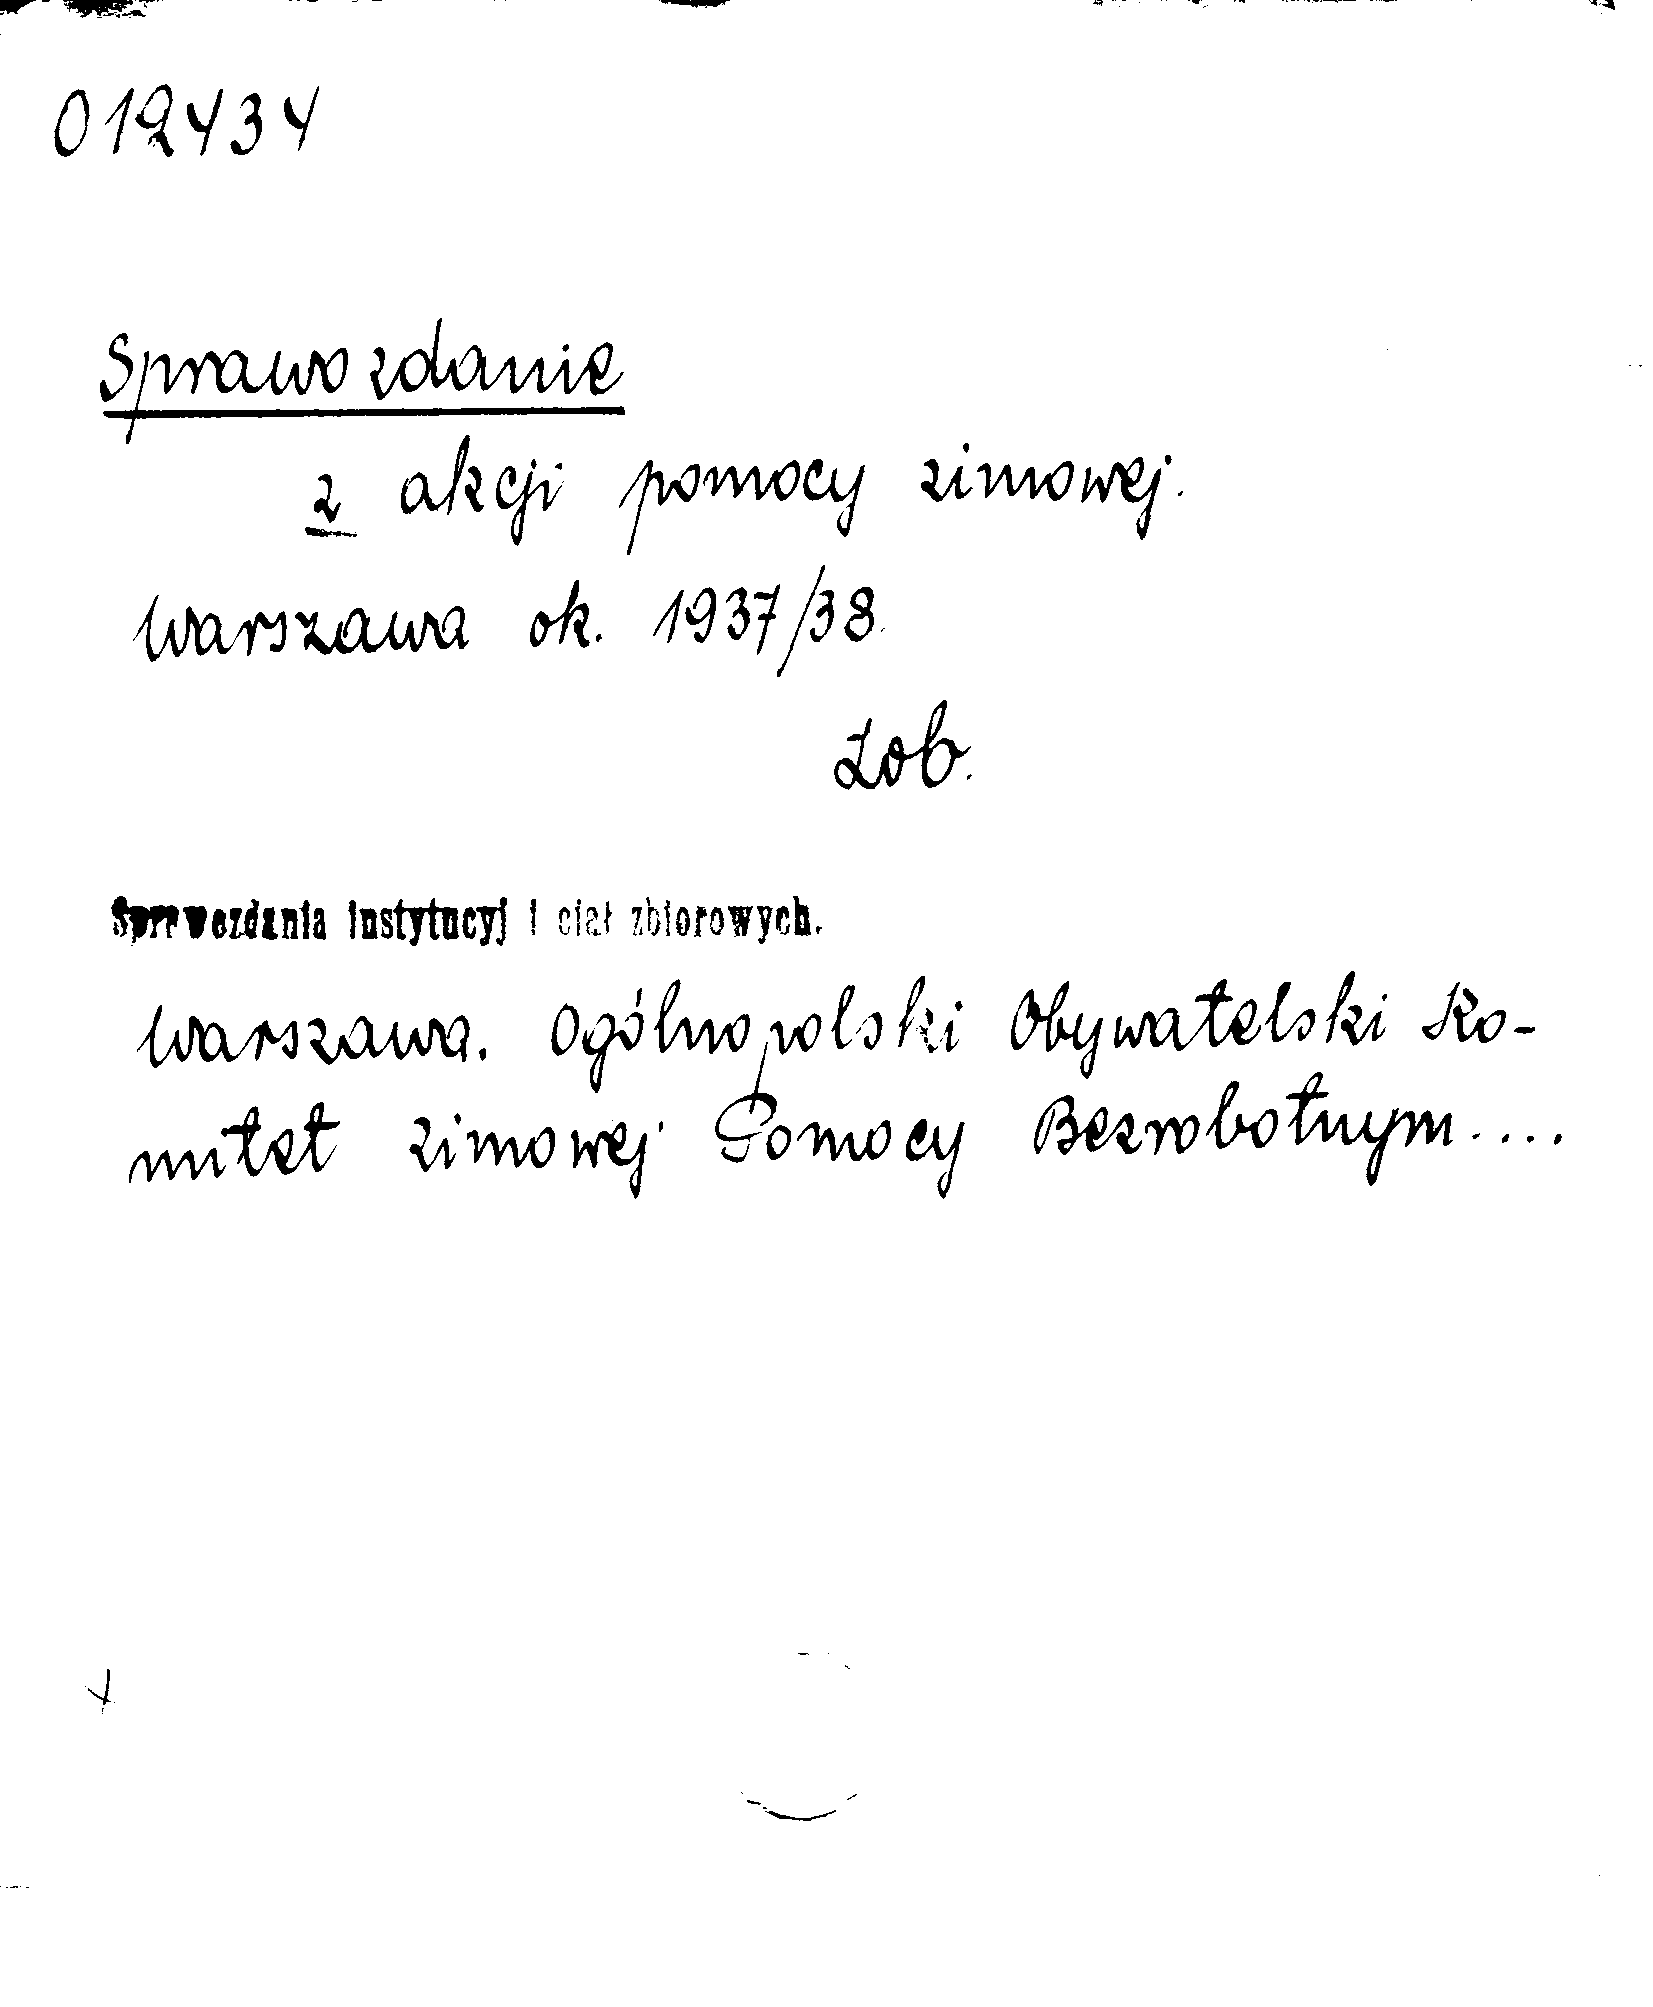 012434
Sprawozdanie
z akcji pomocy zimowej.
Warszawa ok. 1937/38.
Zob.
Sprawozdania instytucyj i ciał zbiorowych.
Warszawa. Ogólnopolski Obywatelski Ko-
mitet zimowej Pomocy Bezrobotnym....